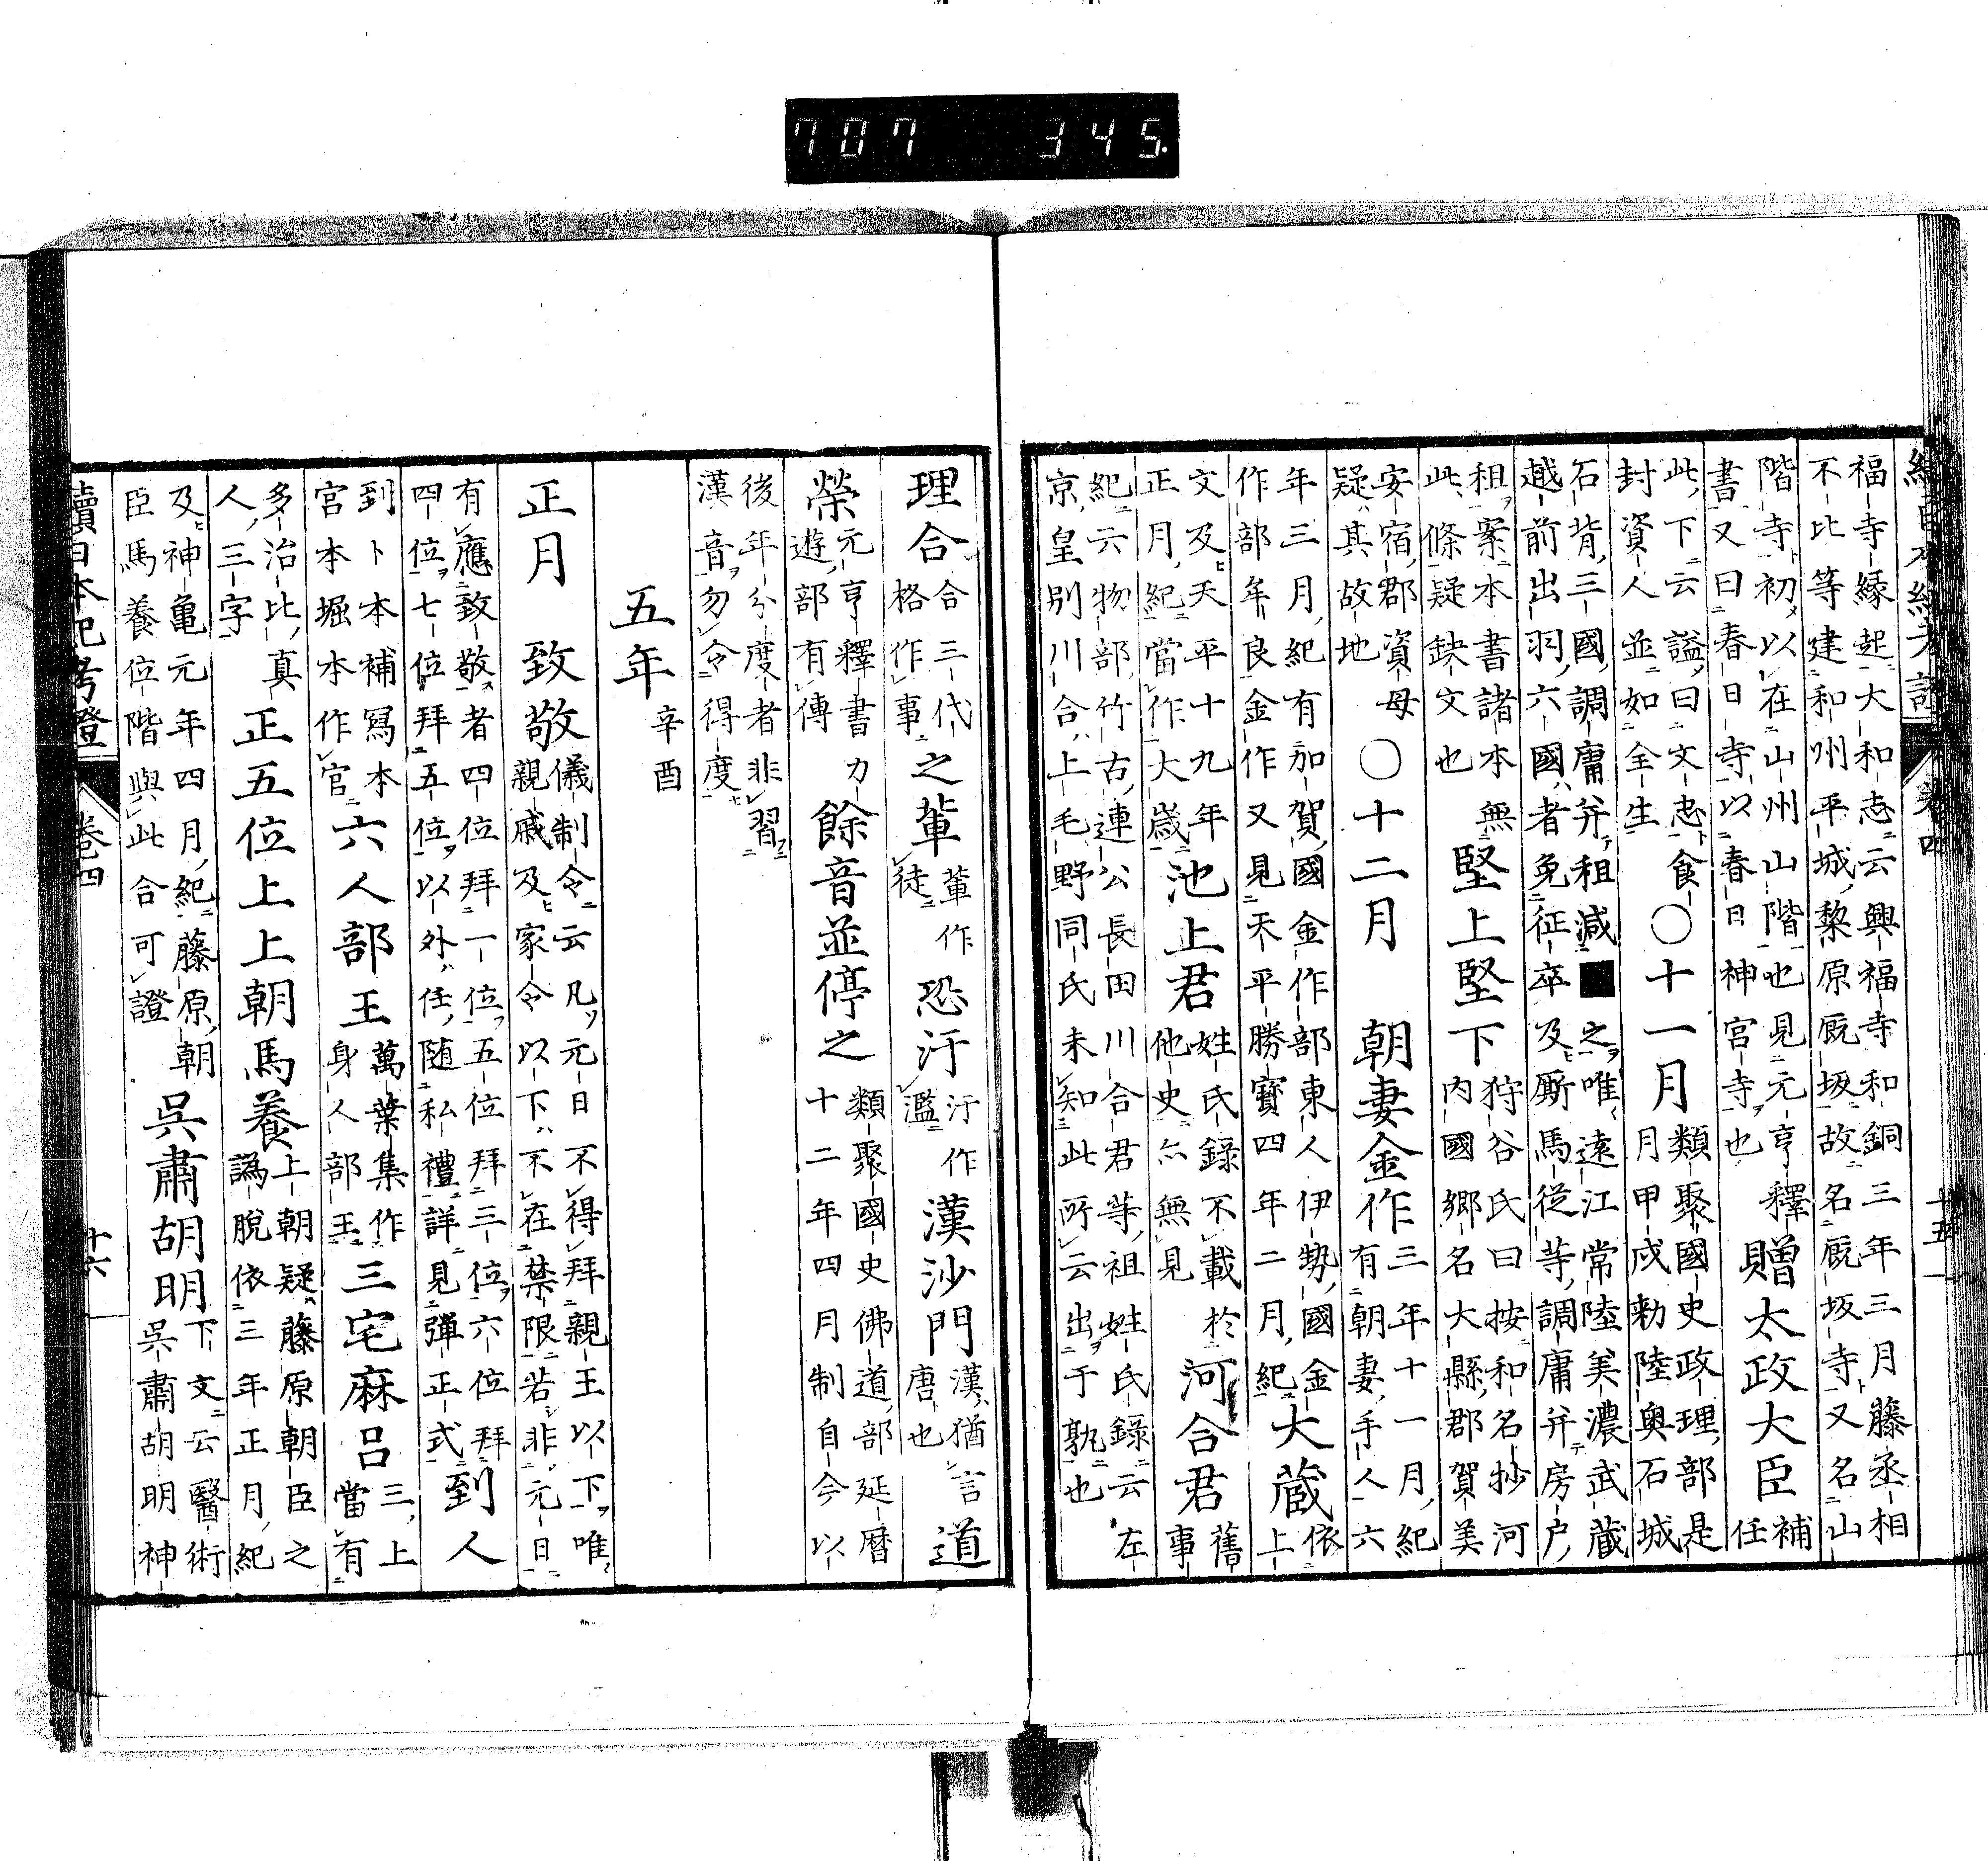 707 345
福寺縁起大和志云興福寺和銅三年三月藤丞相
不比等建和州平城黎原厩坂故名厩坂寺又名山
階寺初以在山州山階也見元亨釋
書又曰春日寺以春日神宮寺也
贈太政大臣補任
此下云謚曰文忠食
封資人並如全生
〇十一月類聚國史政理部是
月甲戌勅陸奧石城
石背三國調庸并租減■之唯遠江常陸美濃武藏
越前出羽六國者免征卒及厮馬從等調庸并房戶
租案本書諸本無
此條疑缺文也
堅上堅下狩谷氏曰按和名抄河
內國鄉名大縣郡賀美
安宿郡資母
疑其故地
〇十二月 朝妻金作三年十一月紀
有朝妻手人六
年三月紀有加賀國金作部東人伊勢國金
作部牟良金作又見天平勝寶四年二月紀
大蔵依上
文及天平十九年
正月紀當作大歲
池上君姓氏錄不載於
他史亦無見
河合君舊事
紀云物部竹古連公長田川合君等祖姓氏錄云左
京皇別川合上毛野同氏未知此所云出于孰也
續日本紀考證 卷四 十五
理合合三代
格作事
之輩輩作
徒
恐汙汙作
濫
漢沙門漢猶言
唐也
道
榮元亨釋書力
遊部有傳
餘音並停之類聚國史佛道部延曆
十二年四月制自今以
後年分度者非習
漢音勿令得度
五年辛酉
正月 致敬儀制令云凡元日不得拜親王以下唯
親戚及家令以下不在禁限若非元日
有應致敬者四位拜一位五位拜三位六位拜
四位七位拜五位以外任随私禮詳見彈正式
到人
到卜本補寫本
宮本堀本作官
六人部王萬葉集作
身人部王
三宅麻呂三上
當有
多治比真
人三字
正五位上上朝馬養上朝疑藤原朝臣之
譌脫依三年正月紀
及神亀元年四月紀藤原朝
臣馬養位階與此合可證
吳肅胡明下文云醫術
吳肅胡明神
續日本紀考證 卷四 十六